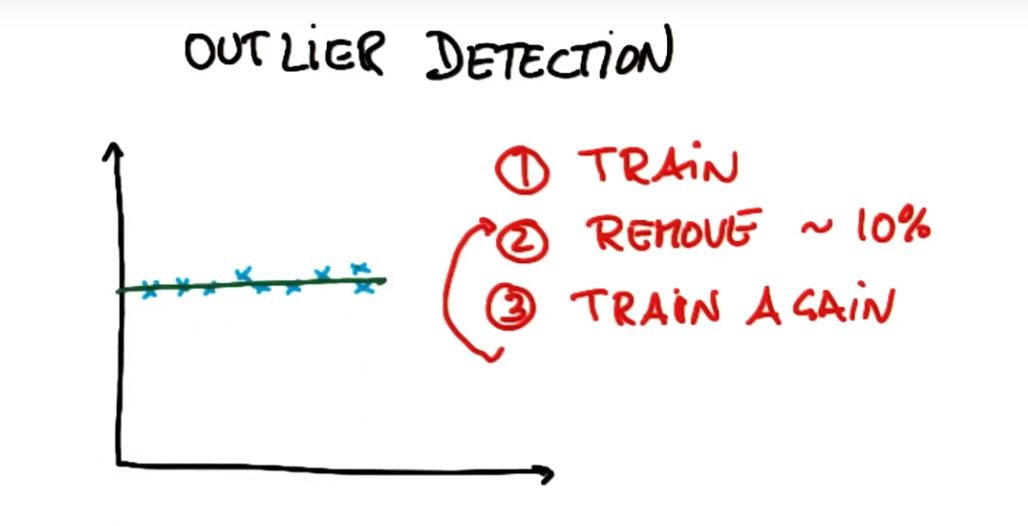 OUTLIER DETECTION
1 TRAIN
2 REMOVE ~ 10%
3 TRAIN AGAIN